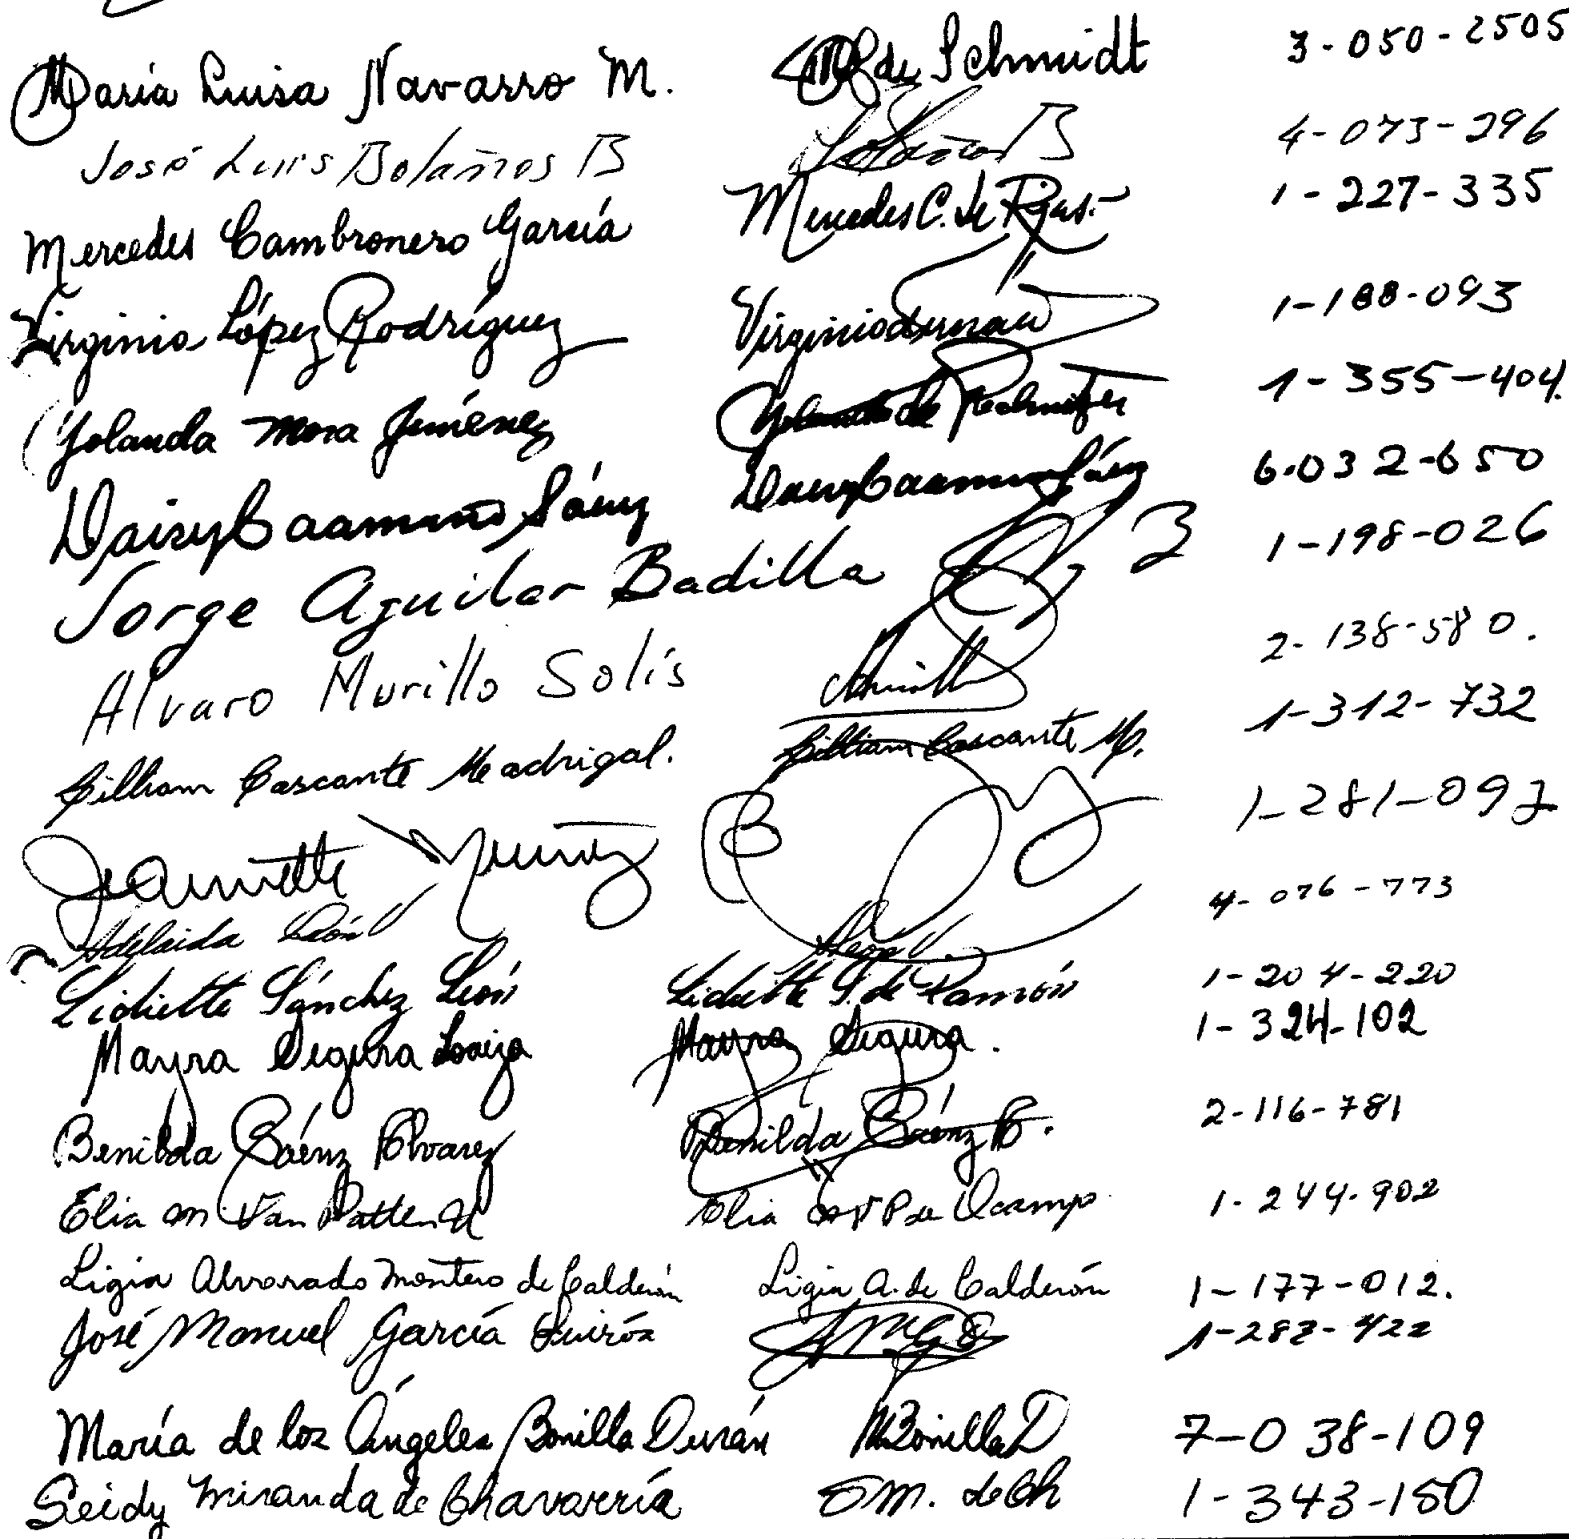 María Luisa Navarro M. de Schmidt 3-050-2505
José Luis Bolaños B Bolaños B 4-073-296
Mercedes Cambronero García Mercedes C. de Rojas.- 1-227-335
Virginia López Rodríguez 1-188-093
Yolanda Mora Jiménez Yolanda de 1-355-404.
Daisy Caamaño Sáenz Daisy Caamaño Sáenz 6-032-650
Jorge Aguilar Badilla 1-198-026
Alvaro Murillo Solís 2-138-580.
Lilliam Cascante Madrigal. Lilliam Cascante M. 1-312-732
Jeannette 1-281-097
Adelaida León V León V. 4-076-773
Lidiette Sánchez León Lidiette S. de Ramón 1-204-220
Mayra Segura Loaiza Mayra Segura. 1-324-102
Benilda Sáenz Álvarez Benilda Sáenz 2-116-781
Elia M. Van Patten Elia de Ocampo 1-244-902
Ligia Alvarado Montero de Calderón Ligia A. de Calderón 1-177-012.
José Manuel García Quirós 1-283-422
María de los Ángeles Bonilla Durán MBonillaD 7-038-109
Seidy Miranda de Chavarría SM. de Ch 1-343-150